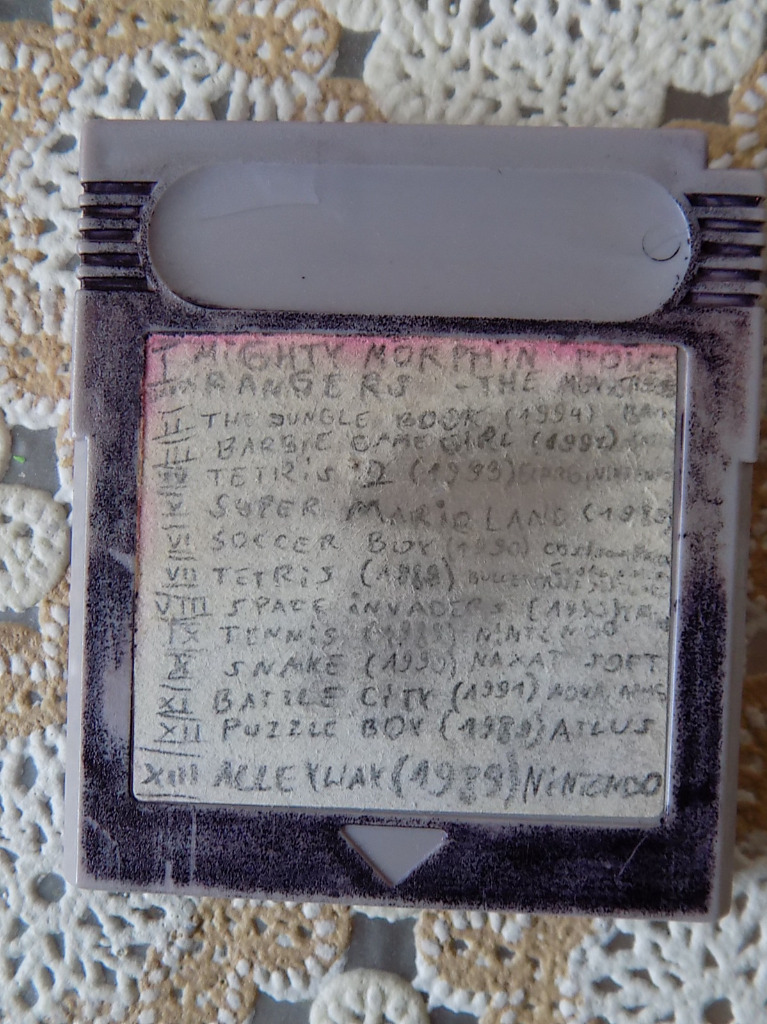 I MIGHTY MORPHIN POWE
RANGERS - THE MOVIE
THE JUNGLE BOOK (1994)
BARBIE GAME GIRL (1992)
TETRIS 2 (1993) NINTENDO
SUPER MARIO LAND (1989
SOCCER BOY (1990)
TETRIS (1989)
SPACE INVADERS (1990)
TENNIS (1989) NINTENDO
SNAKE (1990) NAXAT SOFT
BATTLE CITY (1991) NOVA
XII PUZZLE BOY (1989) ATLUS
XIII ALLEYWAY (1989) NINTENDO